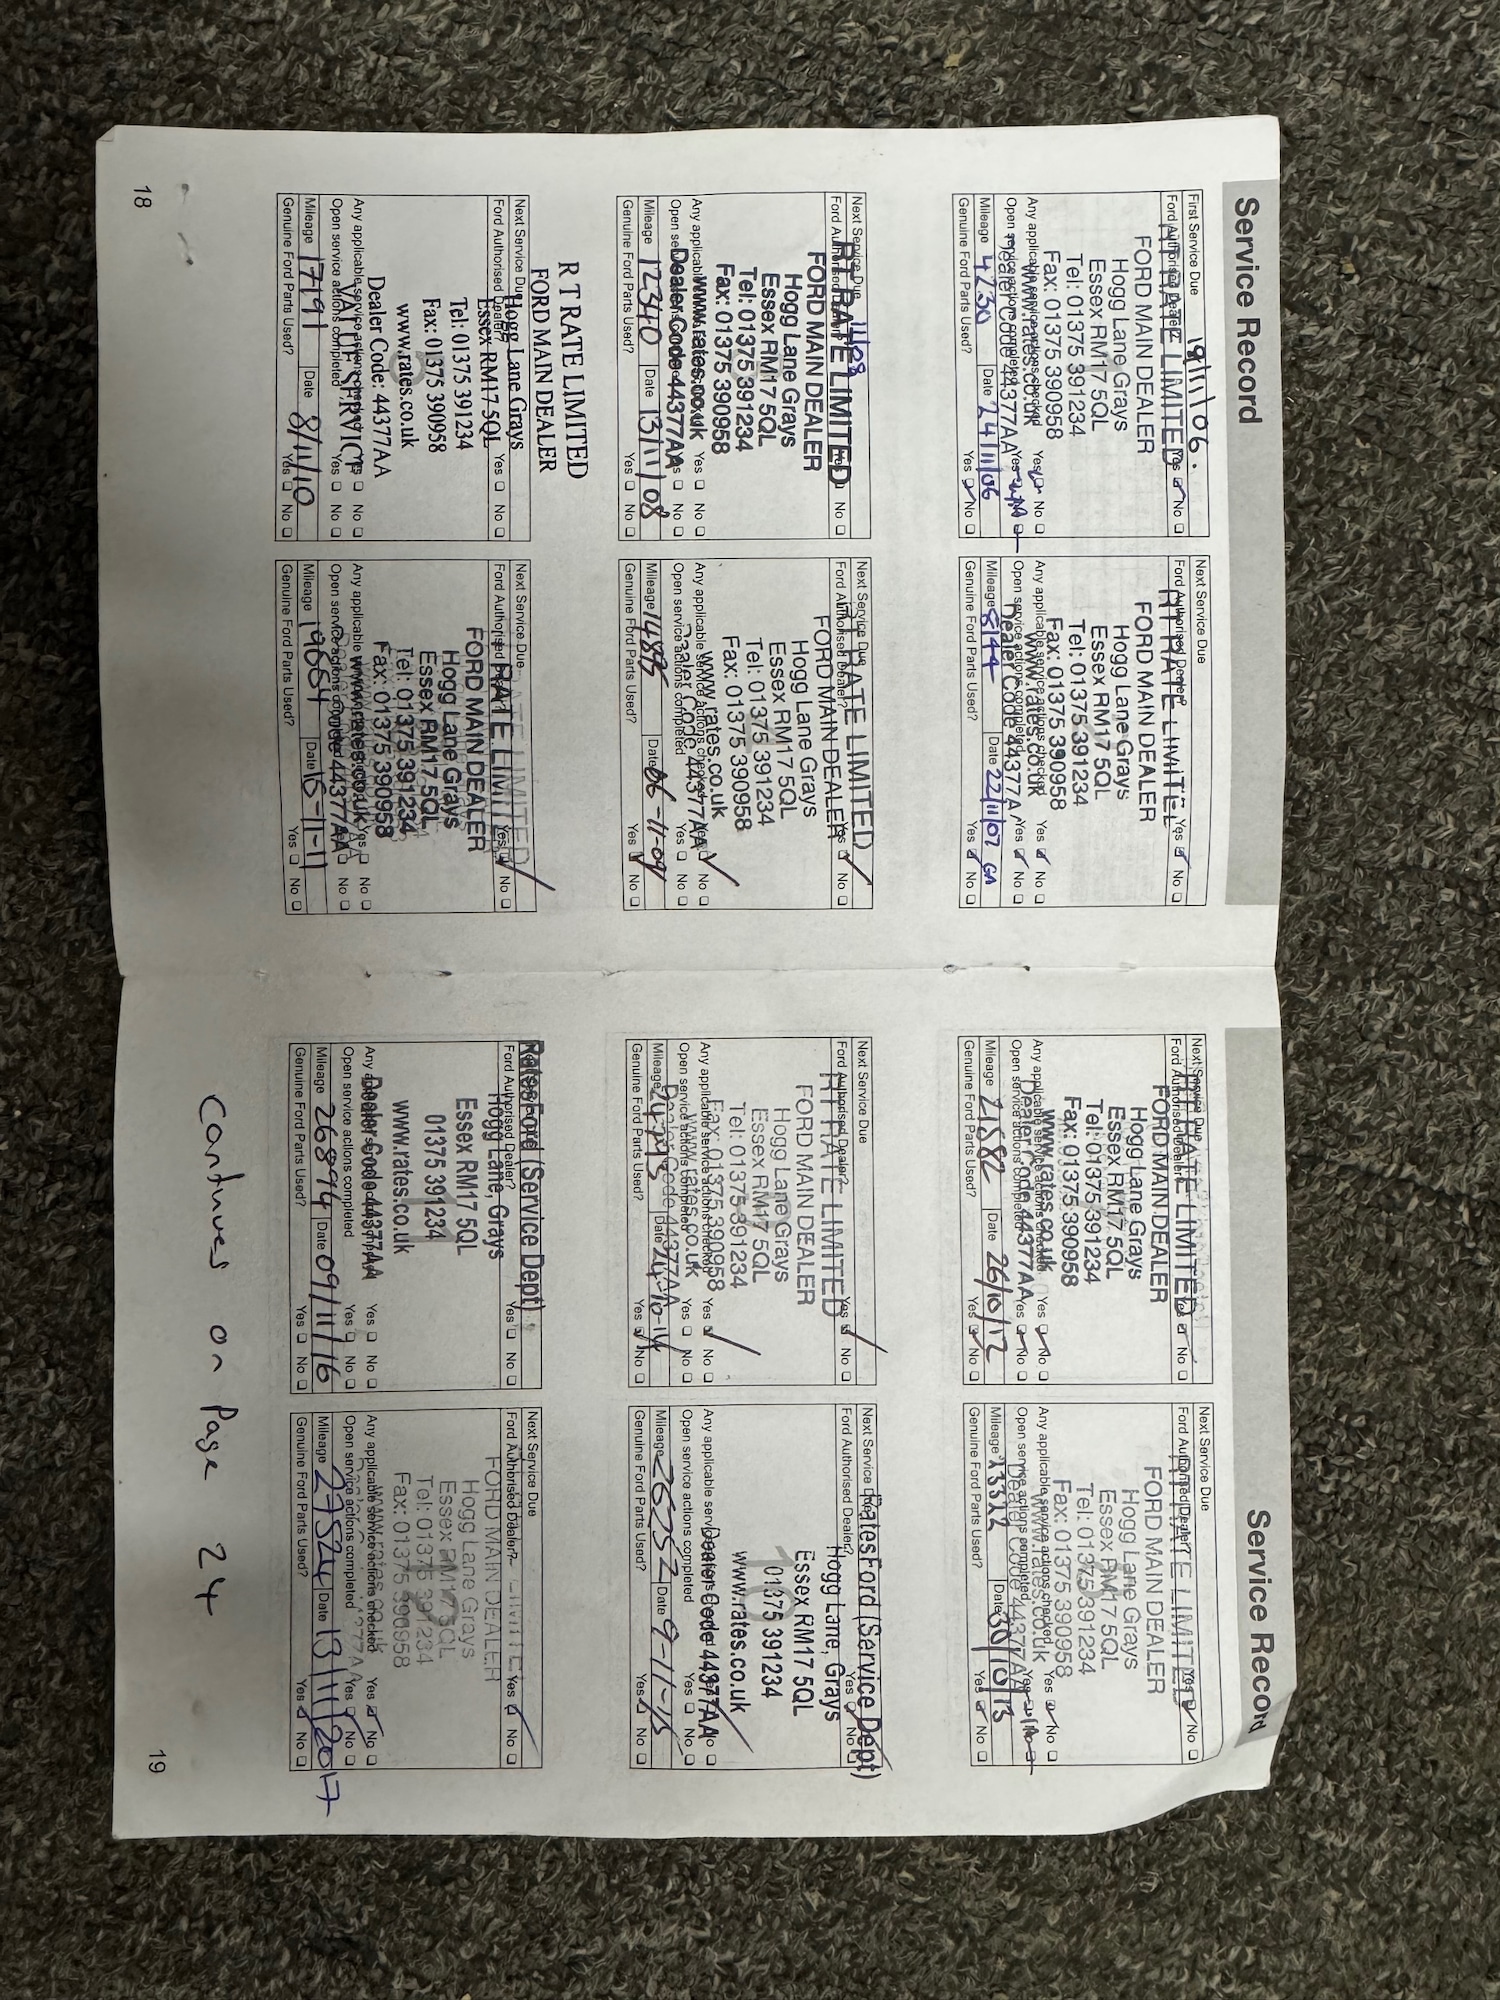 Service Record
First Service Due 19/11/06.
Ford Authorised Dealer? Yes No
R T RATE LIMITED
FORD MAIN DEALER
Hogg Lane Grays
Essex RM17 5QL
Tel: 01375 391234
Fax: 01375 390958
www.rates.co.uk
Any applicable service actions checked Yes No
Dealer Code 44377AA
Open service actions completed Yes No
Mileage 4230 Date 24/11/06
Genuine Ford Parts Used? Yes No
Next Service Due
Ford Authorised Dealer? Yes No
R T RATE LIMITED
FORD MAIN DEALER
Hogg Lane Grays
Essex RM17 5QL
Tel: 01375 391234
Fax: 01375 390958
www.rates.co.uk
Any applicable service actions checked Yes No
Dealer Code 44377A
Open service actions completed Yes No
Mileage 8144 Date 22/11/07 GA
Genuine Ford Parts Used? Yes No
Next Service Due 11/08
Ford Authorised Dealer? Yes No
RT RATE LIMITED
FORD MAIN DEALER
Hogg Lane Grays
Essex RM17 5QL
Tel: 01375 391234
Fax: 01375 390958
www.rates.co.uk
Any applicable service actions checked Yes No
Dealer Code 44377AA
Open service actions completed Yes No
Mileage 12340 Date 13/11/08
Genuine Ford Parts Used? Yes No
Next Service Due
Ford Authorised Dealer? Yes No
RT RATE LIMITED
FORD MAIN DEALER
Hogg Lane Grays
Essex RM17 5QL
Tel: 01375 391234
Fax: 01375 390958
www.rates.co.uk
Any applicable service actions checked Yes No
Dealer Code 44377AA
Open service actions completed Yes No
Mileage 14895 Date 06-11-09
Genuine Ford Parts Used? Yes No
R T RATE LIMITED
FORD MAIN DEALER
Next Service Due
Hogg Lane Grays
Ford Authorised Dealer? Yes No
Essex RM17 5QL
Tel: 01375 391234
Fax: 01375 390958
www.rates.co.uk
Dealer Code: 44377AA
Any applicable service actions checked Yes No
VALUE SERVICE
Open service actions completed Yes No
Mileage 17191 Date 8/11/10
Genuine Ford Parts Used? Yes No
Next Service Due
Ford Authorised Dealer? Yes No
RATE LIMITED
FORD MAIN DEALER
Hogg Lane Grays
Essex RM17 5QL
Tel: 01375 391234
Fax: 01375 390958
www.rates.co.uk
Any applicable service actions checked Yes No
Dealer Code 44377AA
Open service actions completed Yes No
Mileage 19654 Date 15-11-11
Genuine Ford Parts Used? Yes No
18
Service Record
Next Service Due
Ford Authorised Dealer? Yes No
RT RATE LIMITED
FORD MAIN DEALER
Hogg Lane Grays
Essex RM17 5QL
Tel: 01375 391234
Fax: 01375 390958
www.rates.co.uk
Any applicable service actions checked Yes No
Dealer Code 44377AA
Open service actions completed Yes No
Mileage 21582 Date 26/10/12
Genuine Ford Parts Used? Yes No
Next Service Due
Ford Authorised Dealer? Yes No
RT RATE LIMITED
FORD MAIN DEALER
Hogg Lane Grays
Essex RM17 5QL
Tel: 01375 391234
Fax: 01375 390958
www.rates.co.uk
Any applicable service actions checked Yes No
Dealer Code 44377AA
Open service actions completed Yes No
Mileage 23322 Date 30/10/13
Genuine Ford Parts Used? Yes No
Next Service Due
Ford Authorised Dealer? Yes No
RT RATE LIMITED
FORD MAIN DEALER
Hogg Lane Grays
Essex RM17 5QL
Tel: 01375 391234
Fax: 01375 390958
Any applicable service actions checked Yes No
www.rates.co.uk
Open service actions completed Yes No
Dealer Code 44377AA
Mileage Date 24-10-14
Genuine Ford Parts Used? Yes No
Next Service Due
RatesFord (Service Dept)
Ford Authorised Dealer? Yes No
Hogg Lane, Grays
Essex RM17 5QL
01375 391234
10
www.rates.co.uk
Any applicable service actions checked Yes No
Dealer Code 44377AA
Open service actions completed Yes No
Mileage 26252 Date 9-11-15
Genuine Ford Parts Used? Yes No
RatesFord (Service Dept)
Ford Authorised Dealer? Yes No
Hogg Lane, Grays
Essex RM17 5QL
01375 391234
11
www.rates.co.uk
Any applicable service actions checked Yes No
Dealer Code 44377AA
Open service actions completed Yes No
Mileage 26894 Date 09/11/16
Genuine Ford Parts Used? Yes No
Next Service Due
Ford Authorised Dealer? Yes No
FORD MAIN DEALER
Hogg Lane Grays
Essex RM17 5QL
Tel: 01375 391234
Fax: 01375 390958
www.rates.co.uk
Any applicable service actions checked Yes No
Open service actions completed Yes No
Mileage 27524 Date 13/11/2017
Genuine Ford Parts Used? Yes No
19
Continues on Page 24